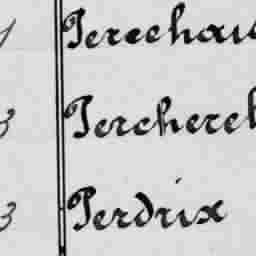 Percehau
3 Percherel
3 Perdrix